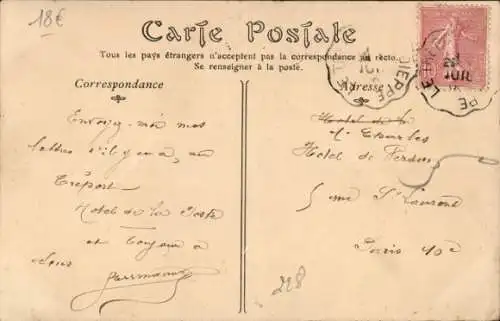 18€
Carte Postale
Tous les pays étrangers n'acceptent pas la correspondance au recto.
Se renseigner à la poste.
Correspondance
Adresse
DIEPPE
JUIL
Envoyez-moi mes
lettres s'il y en a, au
Tréport
Hotel de la Poste
et toujours à
Hotel de la
Mr Charles
Hotel de Verdun
5 rue St Laurent
Paris 10e
228